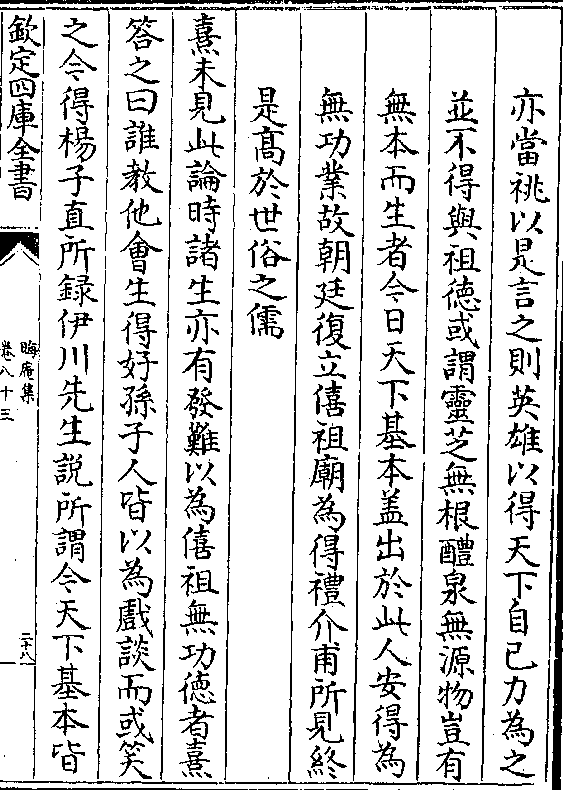 亦當祧以是言之則英雄以得天下自己力為之
並不得與祖德或謂靈芝無根醴泉無源物豈有
無本而生者今日天下基本盖出於此人安得為
無功業故朝廷復立僖祖廟為得禮介甫所見終
是髙於世俗之儒
熹未見此論時諸生亦有發難以為僖祖無功德者熹
答之曰誰教他會生得好孫子人皆以為戲談而或笑
之今得楊子直所録伊川先生説所謂今天下基本皆
欽定四庫全書
晦庵集
卷八十三
二十八